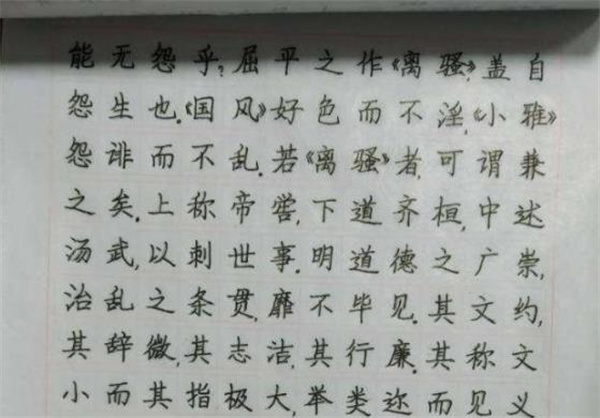 能无怨乎？屈平之作《离骚》，盖自
怨生也。《国风》好色而不淫，《小雅》
怨诽而不乱。若《离骚》者，可谓兼
之矣。上称帝喾，下道齐桓，中述
汤武，以刺世事。明道德之广崇，
治乱之条贯，靡不毕见。其文约，
其辞微，其志洁，其行廉。其称文
小而其指极大，举类迩而见义